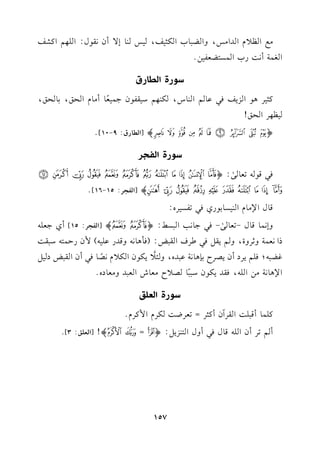 مع الظلام الدامس، والضباب الكثيف، ليس لنا إلا أن نقول: اللهم اكشف
الغمة أنت رب المستضعفين.
سورة الطارق
كثير هو الزيف في عالم الناس، لكنهم سيقفون جميعًا أمام الحق، بالحق،
ليظهر الحق!
﴿يَوْمَ تُبْلَى ٱلسَّرَآئِرُ ۝ فَمَا لَهُۥ مِن قُوَّةٍ وَلَا نَاصِرٍ﴾ [الطارق: ٩-١٠].
سورة الفجر
في قوله تعالىٰ: ﴿فَأَمَّا ٱلْإِنسَٰنُ إِذَا مَا ٱبْتَلَىٰهُ رَبُّهُۥ فَأَكْرَمَهُۥ وَنَعَّمَهُۥ فَيَقُولُ رَبِّىٓ أَكْرَمَنِ ۝
وَأَمَّآ إِذَا مَا ٱبْتَلَىٰهُ فَقَدَرَ عَلَيْهِ رِزْقَهُۥ فَيَقُولُ رَبِّىٓ أَهَٰنَنِ﴾ [الفجر: ١٥-١٦].
قال الإمام النيسابوري في تفسيره:
وإنما قال -تعالىٰ- في جانب البسط: ﴿فَأَكْرَمَهُۥ وَنَعَّمَهُۥ﴾ [الفجر: ١٥] أي جعله
ذا نعمة وثروة، ولم يقل في طرف القبض: (فأهانه وقدر عليه) لأن رحمته سبقت
غضبه؛ فلم يرد أن يصرح بإهانة عبده، ولئلَّا يكون الكلام نصًا في أن القبض دليل
الإهانة من الله، فقد يكون سببًا لصلاح معاش العبد ومعاده.
سورة العلق
كلما أقبلت القرآن أكثر = تعرضت لكرم الأكرم.
ألم تر أن الله قال في أول التنزيل: ﴿ٱقْرَأْ = وَرَبُّكَ ٱلْأَكْرَمُ﴾! [العلق: ٣].
١٥٧